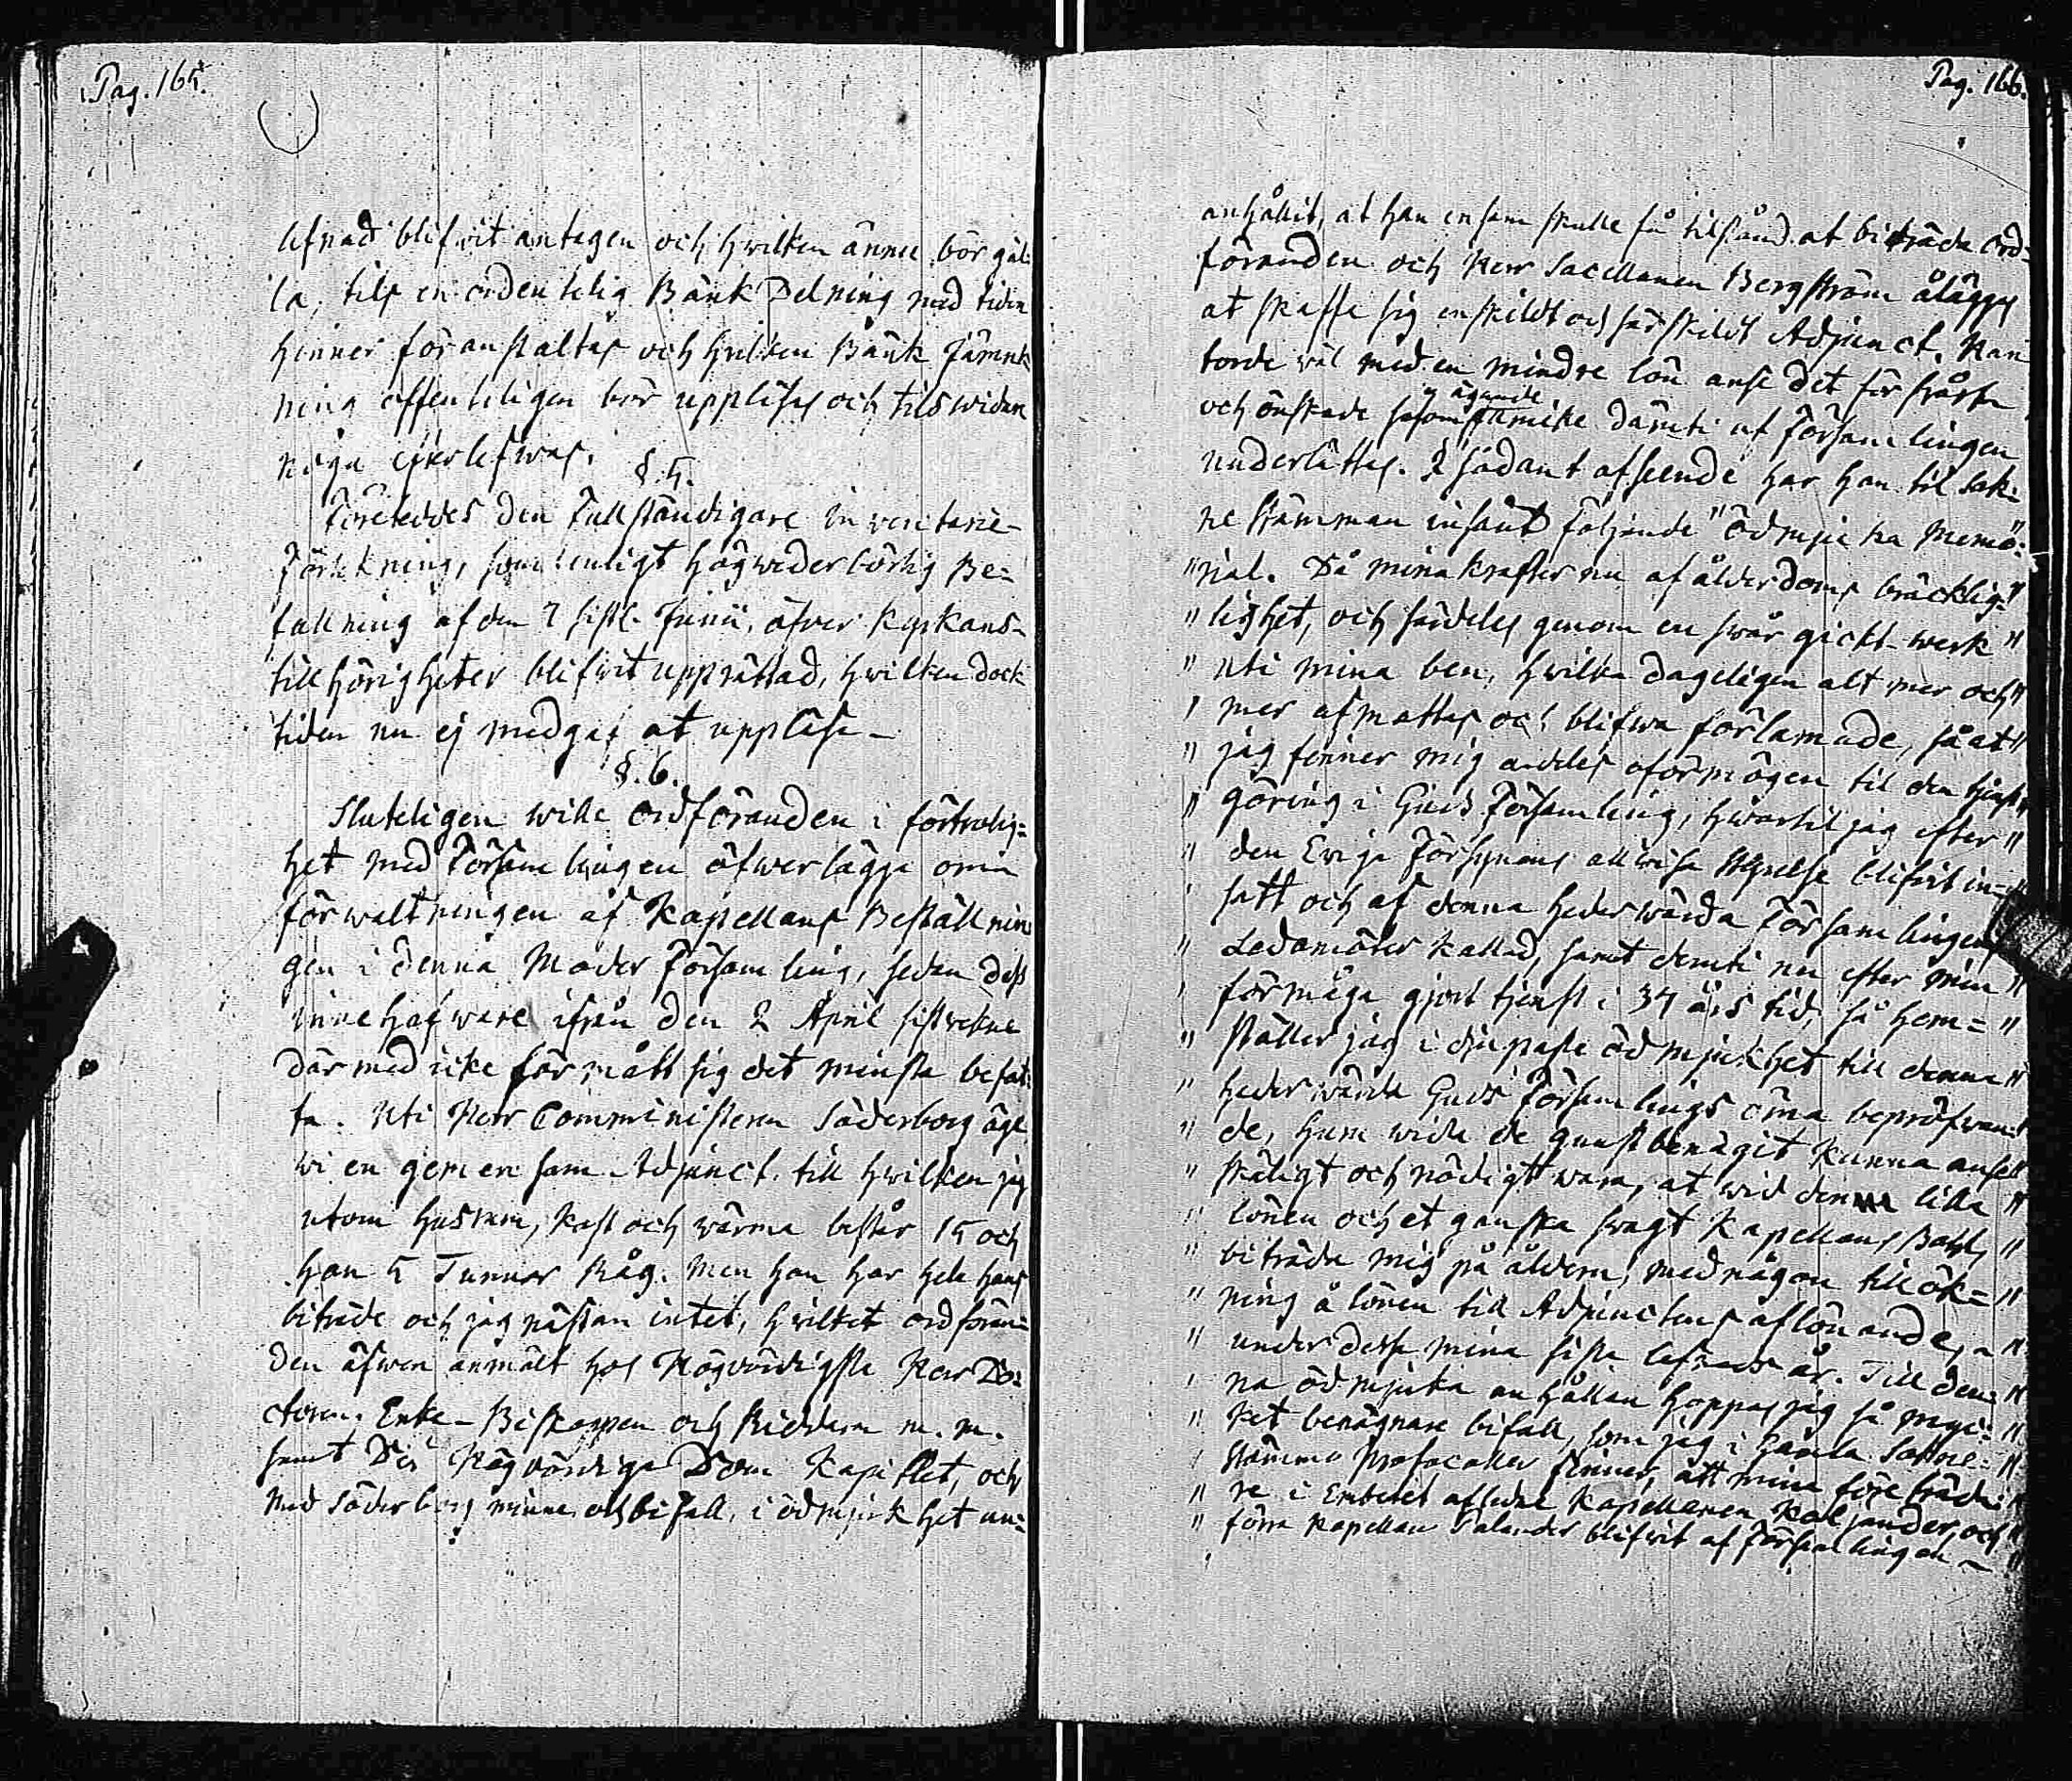 Pag. 165.
lefnad blifwit antagen och hwilken ännu bör gäl-
la, tils en ordentelig Bänk Delning med tiden
hinner föranstaltas och hvilken Bänk Jämnk
ning offenteligen bör uppläsas och tilswidare
noga efterlefwas.
§. 5.
Företeddes den Fullständigare inventarie-
Förtekning, som enligt högwederbörlig Be=
fallning af den 7 sistl. Junii, öfver Kyrkans-
tillhörigheter blifwit upprättad, hwilken dock
tiden nu ej medgaf at uppläsa -
§. 6.
Sluteligen wille Ordföranden i förtrolig=
het med Församlingen öfwerlägga om
förwaltningen af Kapellans Beställnin
gen i denna Moder Församling, sedan dess
innehafware ifrån den 2 April sistwekne
därmed icke förmått sig det minsta befat-
ta. Uti Herr Comministern Söderborg äge
wi en gemensam Adjunct. till hwilken jag
utom husrum, kost och wärma består 15 och
han 5 Tunnor Råg. Men han har hela hans
biträde och jag nästan intet, hvilket ordföran=
den äfwen anmält hos Högvördigste Herr Do=
ctoren Erke-Biskoppen och Riddaren m. m.
samt Det Högvördiga Dom Kapitlet, och
med Söderborgs minne och bifall, i ödmjukhet an=
Pag. 166.
anhållit, at han ensam skulle få tilstånd at biträda Ord=
föranden och Herr Sacellanen Bergström åläggas
at skaffa sig enskildt och särskildt Adjunct. Han
torde wäl med en mindre lön anse det för swårt
ägande
och önskade såsom Famille därati af Församlingen
underlättas. I sådant afseende har han til Sok=
ne stämman insändt följande "ödmjuka Memo="
"rial. Då mina krafter nu af ålderdoms bräcklig="
"lighet, och särdeles genom en swår gickt-werk"
"uti mina ben, hwilka dageligen alt mer och"
" mer afmattas och blifwa förlamade, så at"
"jag finner mig aldeles oförmögen til den tjenst"
" göring i Guds Församling, hwartil jag efter"
" den Ewiga Försynens allwisa Styrelse blifwit in="
" satt och af denna hederwärda Församlingens
" Ledamöter kallad, samt deruti nu efter min"
" förmåga gjort tjenst i 34 års tid, så hem="
" ställer jag i djupaste ödmjukhet till denna"
" hederwärda Guds Församlings ömma bepröfwan="
" de, hum wida de gunstbenägit kunna anse"
" skäligt och nödigt wara, at wid denna lilla"
" lönen och et ganska swagt Kapellans Bohl,"
" biträda mig på ålderen, med någon tillök="
" ning å lönen till Adjunctens aflönande,"
" under dessa mina sista lefnads år. Till den="
" na ödmjuka anhållan hoppas jag så myc="
" ket benägnare bifall, som jag i Gamla Sokne="
" stämmo Protocoller finner, att mina företräda="
" re i Embetet afledne Kapellanen Kaljander, och"
" förra Kapellan Salander blifwit af Församlingen - "